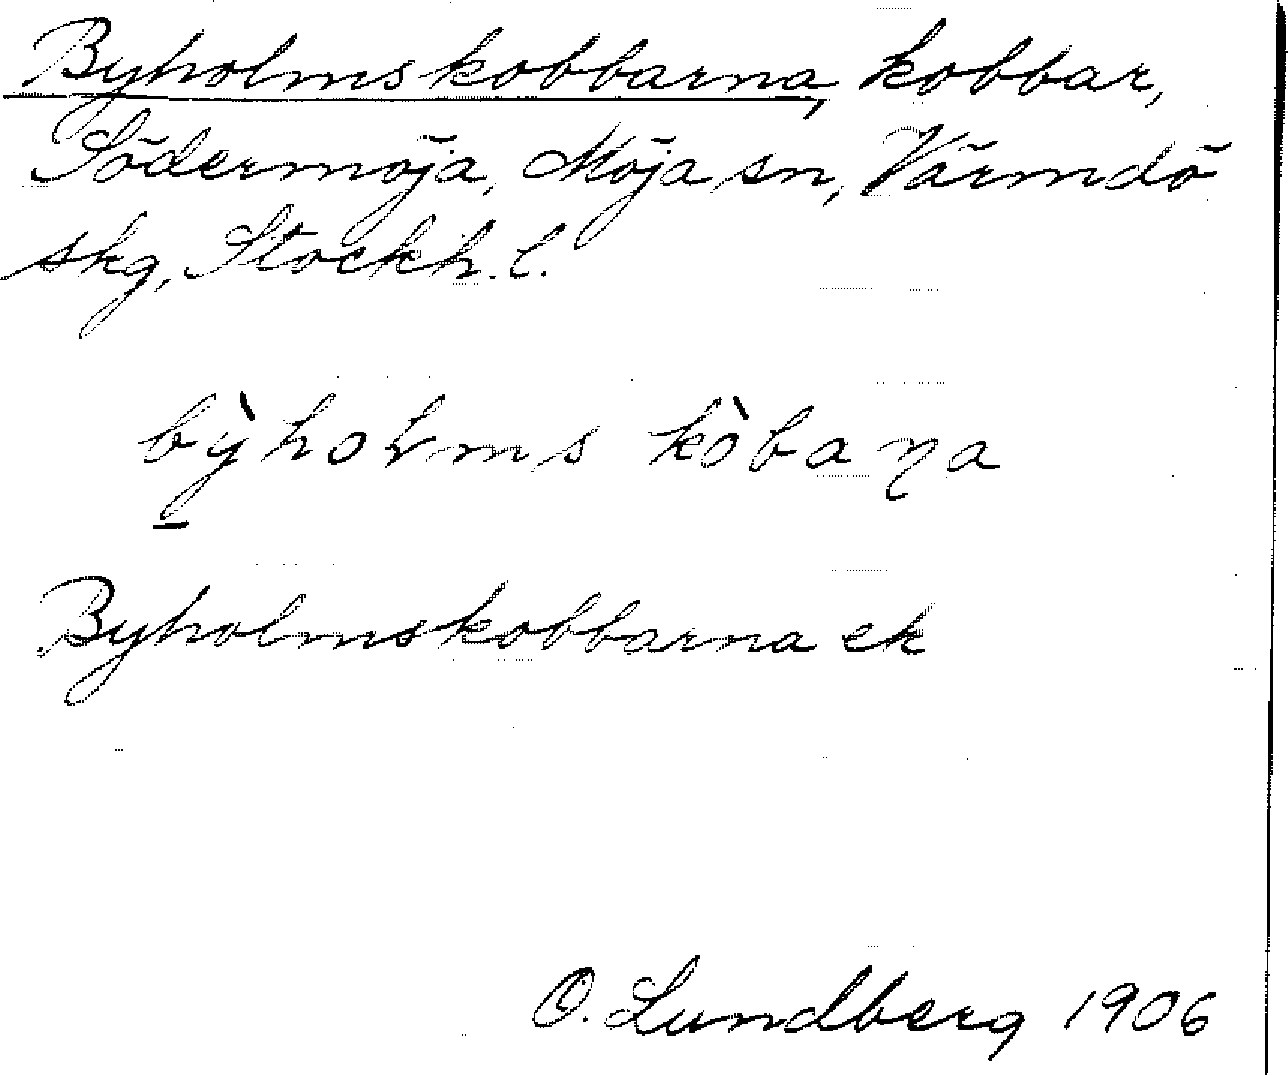 Byholmskobbarna, kobbar,
Södermöja, Möja sn, Värmdö
skg, Stockh. l.
bỳholms kòbaɳa
Byholmskobbarna ek
O. Lundberg 1906